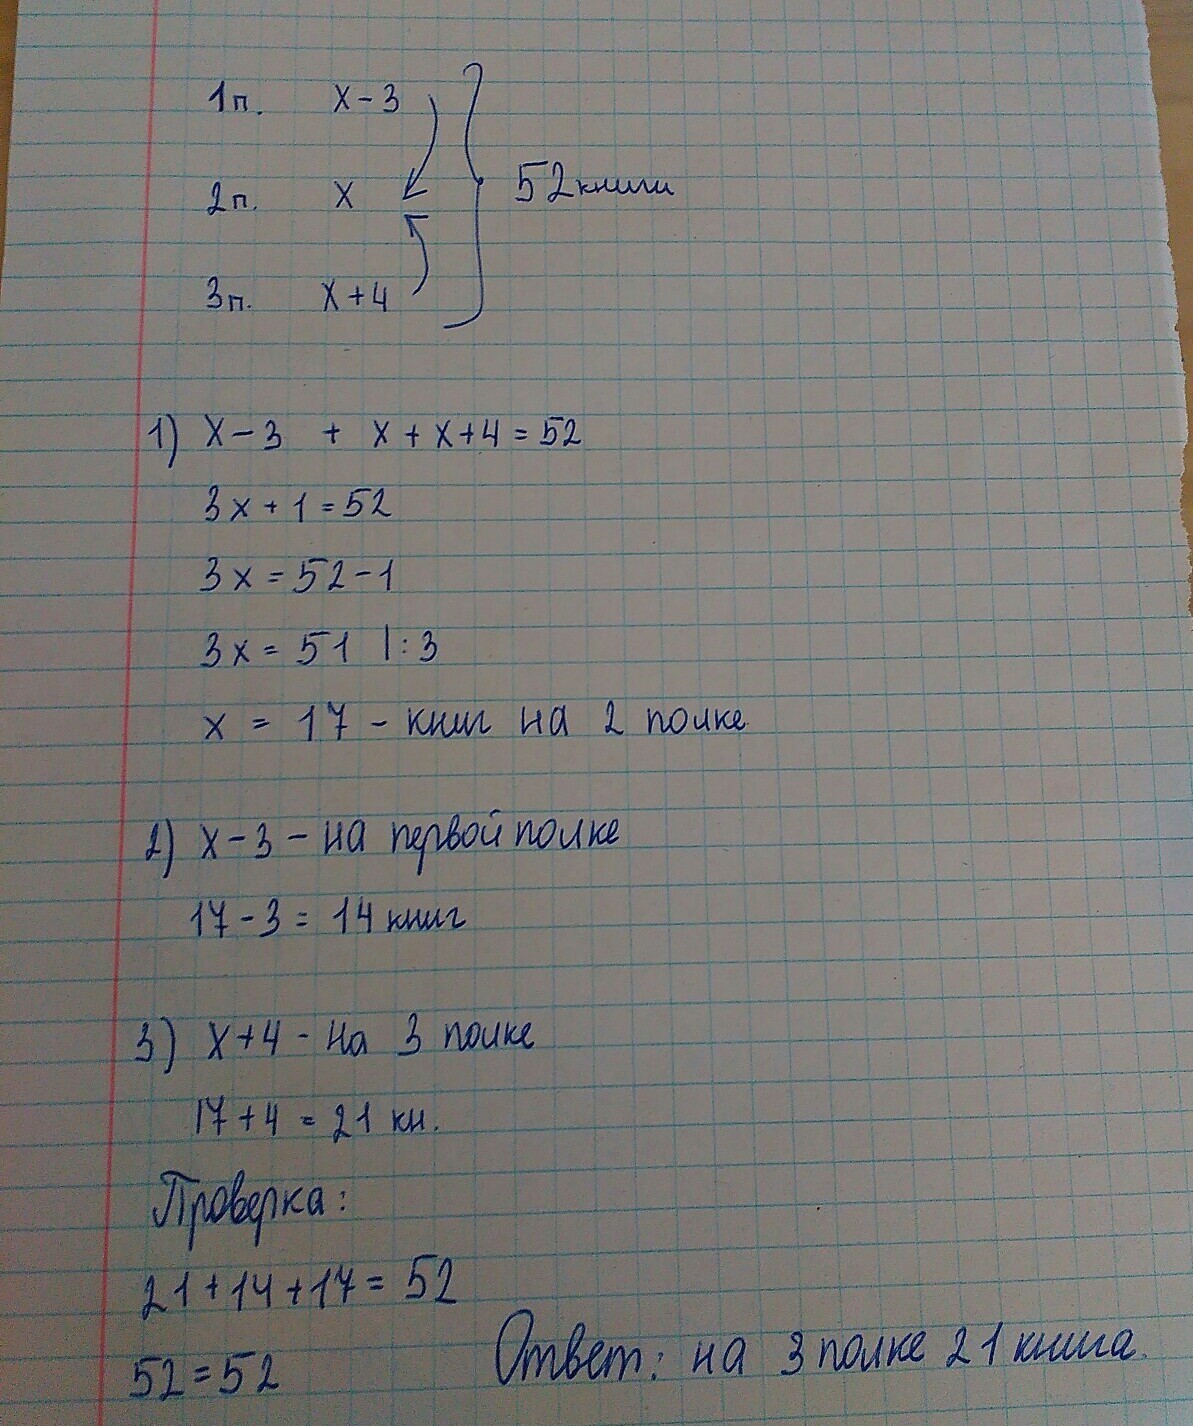 1п. x-3
2п. x 52 книги
3п. x+4
1) x-3 + x + x+4 = 52
3x + 1 = 52
3x = 52-1
3x = 51 |:3
x = 17 - книг на 2 полке
2) x-3 - на первой полке
17-3 = 14 книг
3) x+4 - на 3 полке
17+4 = 21 кн.
Проверка:
21+14+17 = 52
52=52
Ответ: на 3 полке 21 книга.